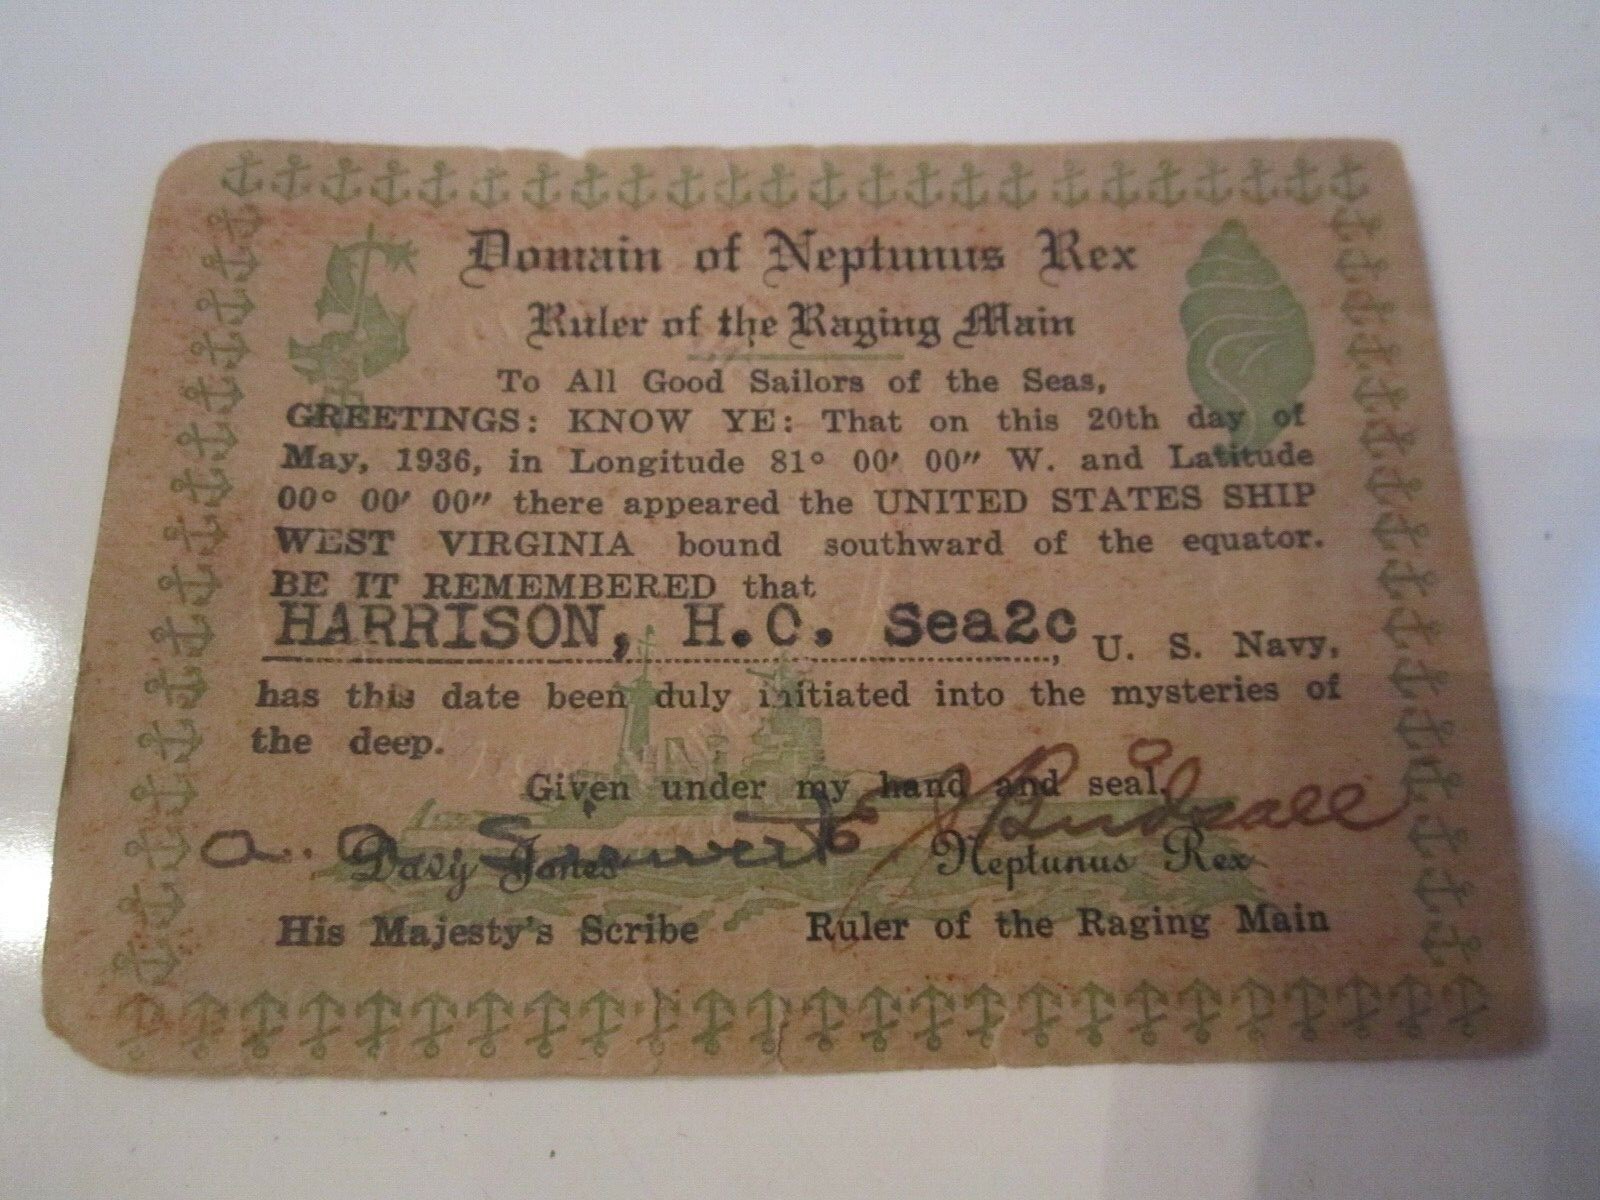 Domain of Neptunus Rex
Ruler of the Raging Main
To All Good Sailors of the Seas,
GREETINGS: KNOW YE: That on this 20th day of
May, 1936, in Longitude 81° 00′ 00″ W. and Latitude
00° 00′ 00″ there appeared the UNITED STATES SHIP
WEST VIRGINIA bound southward of the equator.
BE IT REMEMBERED that
HARRISON, H.C. Sea2c, U. S. Navy,
has this date been duly initiated into the mysteries of
the deep.
Given under my hand and seal.
Davy Jones Neptunus Rex
His Majesty's Scribe Ruler of the Raging Main